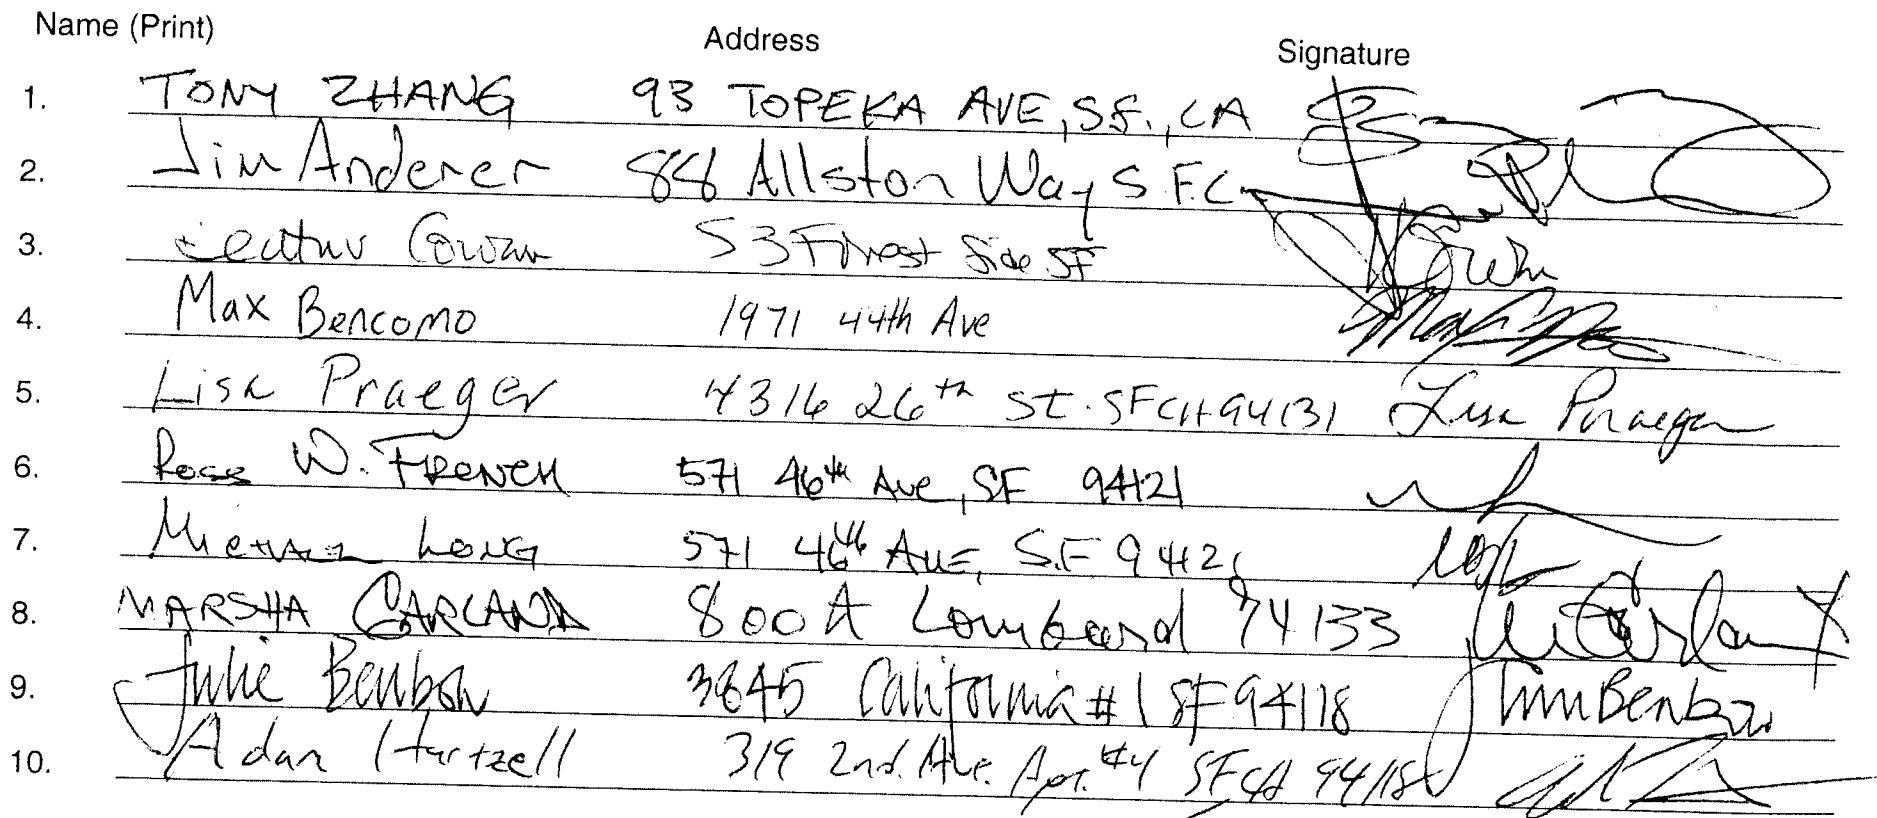 Name (Print) Address Signature
1. TONY ZHANG 93 TOPEKA AVE, S.F., CA
2. Jim Anderer 88 Allston Way S.F.C
3. Cowan 53 Forest Side SF
4. Max Bencomo 1971 44th Ave
5. Lisa Praeger 4316 26th St. SF CA 94131 Lisa Praeger
6. Ross W. FRENCH 571 46th Ave, SF 94121
7. Michael LONG 571 46th AVE, S.F 94121
8. MARSHA GARLAND 800 A Lombard 94133
9. Julie Benbow 3645 California #1 SF 94118
10. Adam Hartzell 319 2nd. Ave. Apt. #4 SF CA 94118